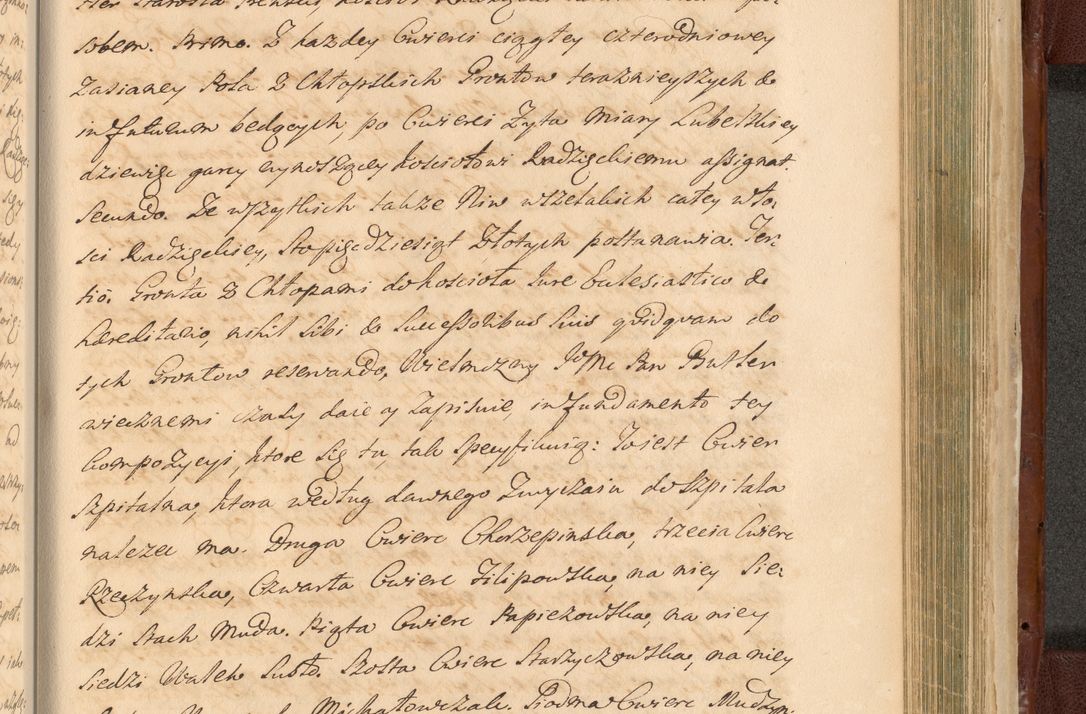 sobem. Primo. Z każdey Cwierci ciągłey czterodniowey
Zasianey Pola z Chłopskich Grontow teraznieyszych &
in futurum będących, po Cwierci Zyta Miary Lubelskiey
dziewięć garcy wynoszącey kosciołowi Radzięckiemu assignat.
Secundo. De wszytkich także Niw wszelakich całey wło:
sci Radzięckiey, Sto pięcdziesiąt Złotych postanawia. Ter:
tiò. Gronta z Chłopami do kościoła Jure Eclesiastico &
hæreditario, nihil Sibi & Successoribus Suis quidquam do
tych Grontow reservando, Wielmożny JMc Pan Butler
wiecznemi czasy daie y Zapisuie, in fundamento tey
Compozycyi, ktore Się tu, tak specyfikuią: To iest Cwierć
Szpitalna, ktora według dawnego Zwyczaiu do Szpitala
nalezec ma. Druga Cwierc Chorzepinska, trzecia Cwierc
Rzeczynska, Czwarta Cwierc Filipowska, na niey Sie:
dzi Stach Muda. Piąta Cwierc Papieżowska, na niey
Siedzi Walek Susło. Szosta Cwierc Starzyczowska, na niey
Michałowczak. Siodma Cwierc Mudzyn